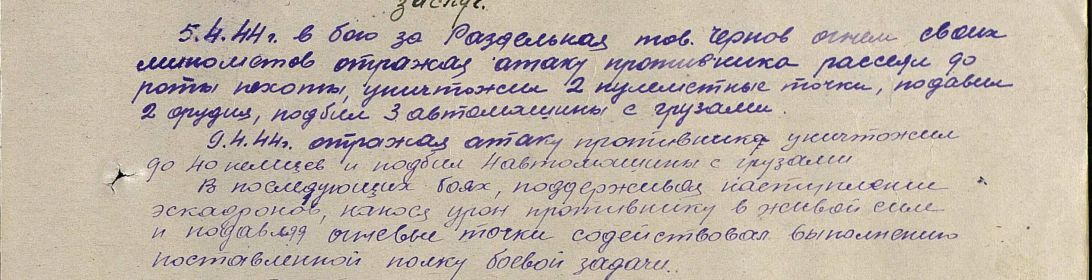 заслуг.
5.4.44г. в бою за Раздельная тов. Чернов огнем своих
минометов отражая атаку противника рассеял до
роты пехоты, уничтожил 2 пулеметные точки, подавил
2 орудия, подбил 3 автомашины с грузами.
9.4.44г. отражая атаку противника уничтожил
до 40 немцев и подбил 4 автомашины с грузами
В последующих боях, поддерживая наступление
эскадронов, нанося урон противнику в живой силе
и подавляя огневые точки содействовал выполнению
поставленной полку боевой задачи.